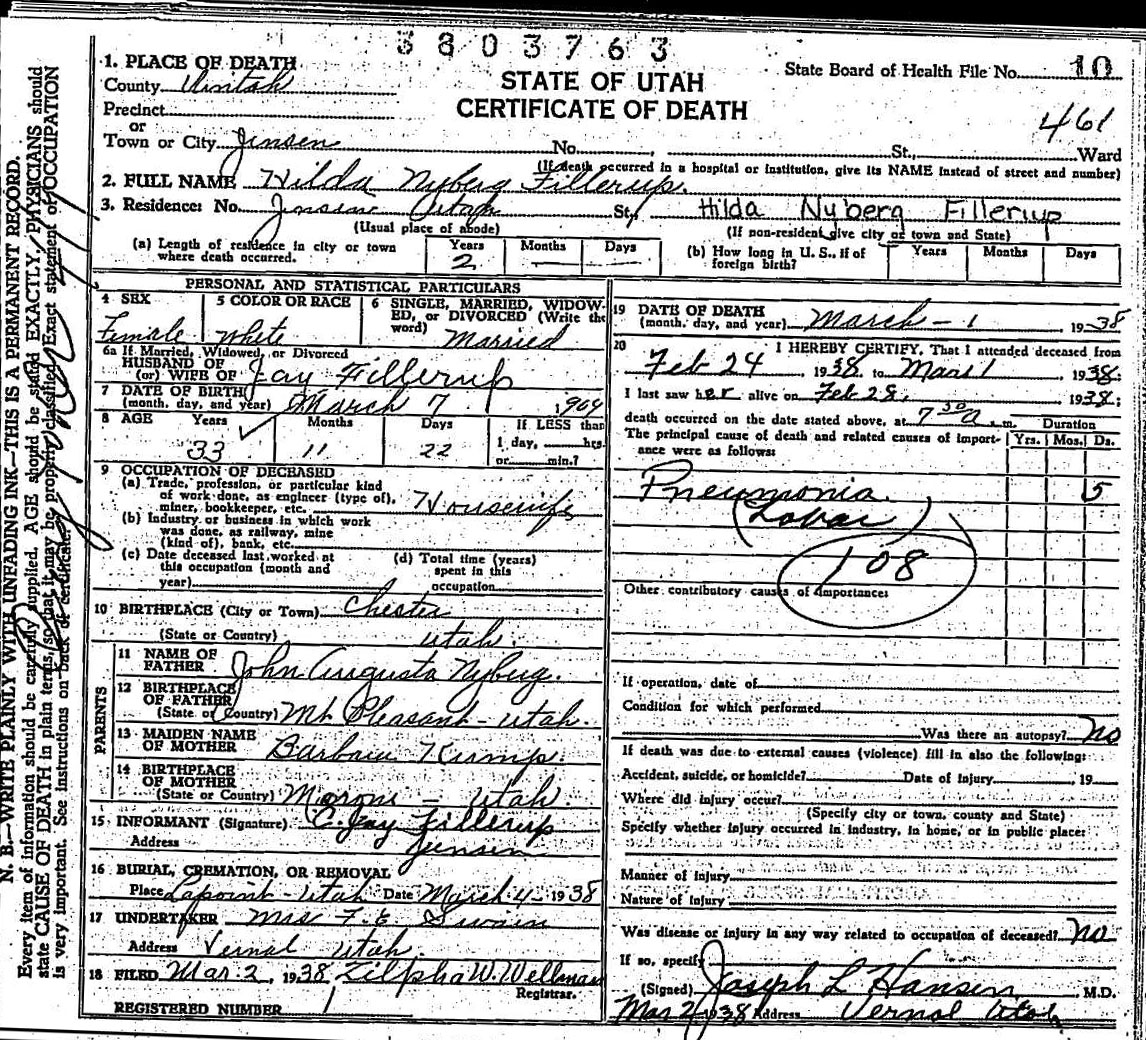 3803763
10
1. PLACE OF DEATH
STATE OF UTAH
State Board of Health File No.
County Uintah
CERTIFICATE OF DEATH
Precinct
461
or
Town or City Jensen No. , St., Ward
(If death occurred in a hospital or institution, give its NAME instead of street and number)
2. FULL NAME Hilda Nyberg Fillerup.
3. Residence: No. Jensen Utah St., Hilda Nyberg Fillerup
(Usual place of abode) (If non-resident give city or town and State)
(a) Length of residence in city or town where death occurred. Years 2 Months — Days —
(b) How long in U. S., if of foreign birth? Years Months Days
PERSONAL AND STATISTICAL PARTICULARS
4 SEX Female
5 COLOR OR RACE White
6 SINGLE, MARRIED, WIDOWED, or DIVORCED (Write the word) Married
6a If Married, Widowed, or Divorced
HUSBAND OF
(or) WIFE OF Jay Fillerup
7 DATE OF BIRTH
(month, day, and year) March 7 1904
8 AGE Years 33 Months 11 Days 22 If LESS than
1 day, hrs.
or min.?
9 OCCUPATION OF DECEASED
(a) Trade, profession, or particular kind
of work done, as engineer (type of),
miner, bookkeeper, etc. Housewife
(b) Industry or business in which work
was done, as railway, mine
(kind of), bank, etc.
(c) Date deceased last worked at
this occupation (month and
year)
(d) Total time (years)
spent in this
occupation
10 BIRTHPLACE (City or Town) Chester
(State or Country) Utah.
PARENTS
11 NAME OF
FATHER John Augusta Nyberg.
12 BIRTHPLACE
OF FATHER
(State or Country) Mt Pleasant - Utah.
13 MAIDEN NAME
OF MOTHER Barbara
14 BIRTHPLACE
OF MOTHER
(State or Country) Moroni - Utah.
15 INFORMANT (Signature) C. Jay Fillerup
Address Jensen
16 BURIAL, CREMATION, OR REMOVAL
Place Lapoint - Utah Date March 4 - 1938
17 UNDERTAKER Mrs F. E Swain
Address Vernal Utah.
18 FILED Mar. 2, 1938 Zilpha W. Wellman
Registrar.
REGISTERED NUMBER 1
19 DATE OF DEATH
(month, day, and year) March - 1 1938
20 I HEREBY CERTIFY, That I attended deceased from
Feb 24 1938 to Mar 1 1938
I last saw her alive on Feb 28, 1938
death occurred on the date stated above, at 7 30 a.m. Duration
The principal cause of death and related causes of importance were as follows: Yrs. Mos. Ds.
Pneumonia. 5
(Lobar)
108
Other contributory causes of importance:
If operation, date of
Condition for which performed
Was there an autopsy? No
If death was due to external causes (violence) fill in also the following:
Accident, suicide, or homicide? Date of injury , 19
Where did injury occur?
(Specify city or town, county and State)
Specify whether injury occurred in industry, in home, or in public place:
Manner of injury
Nature of injury
Was disease or injury in any way related to occupation of deceased? No
If so, specify
(Signed) Joseph L Hansen M.D.
Mar 2 1938 Address Vernal Utah
N. B.—WRITE PLAINLY WITH UNFADING INK—THIS IS A PERMANENT RECORD.
Every item of information should be carefully supplied. AGE should be stated EXACTLY. PHYSICIANS should
state CAUSE OF DEATH in plain terms, so that it may be properly classified. Exact statement of OCCUPATION
is very important. See instructions on back of certificate.